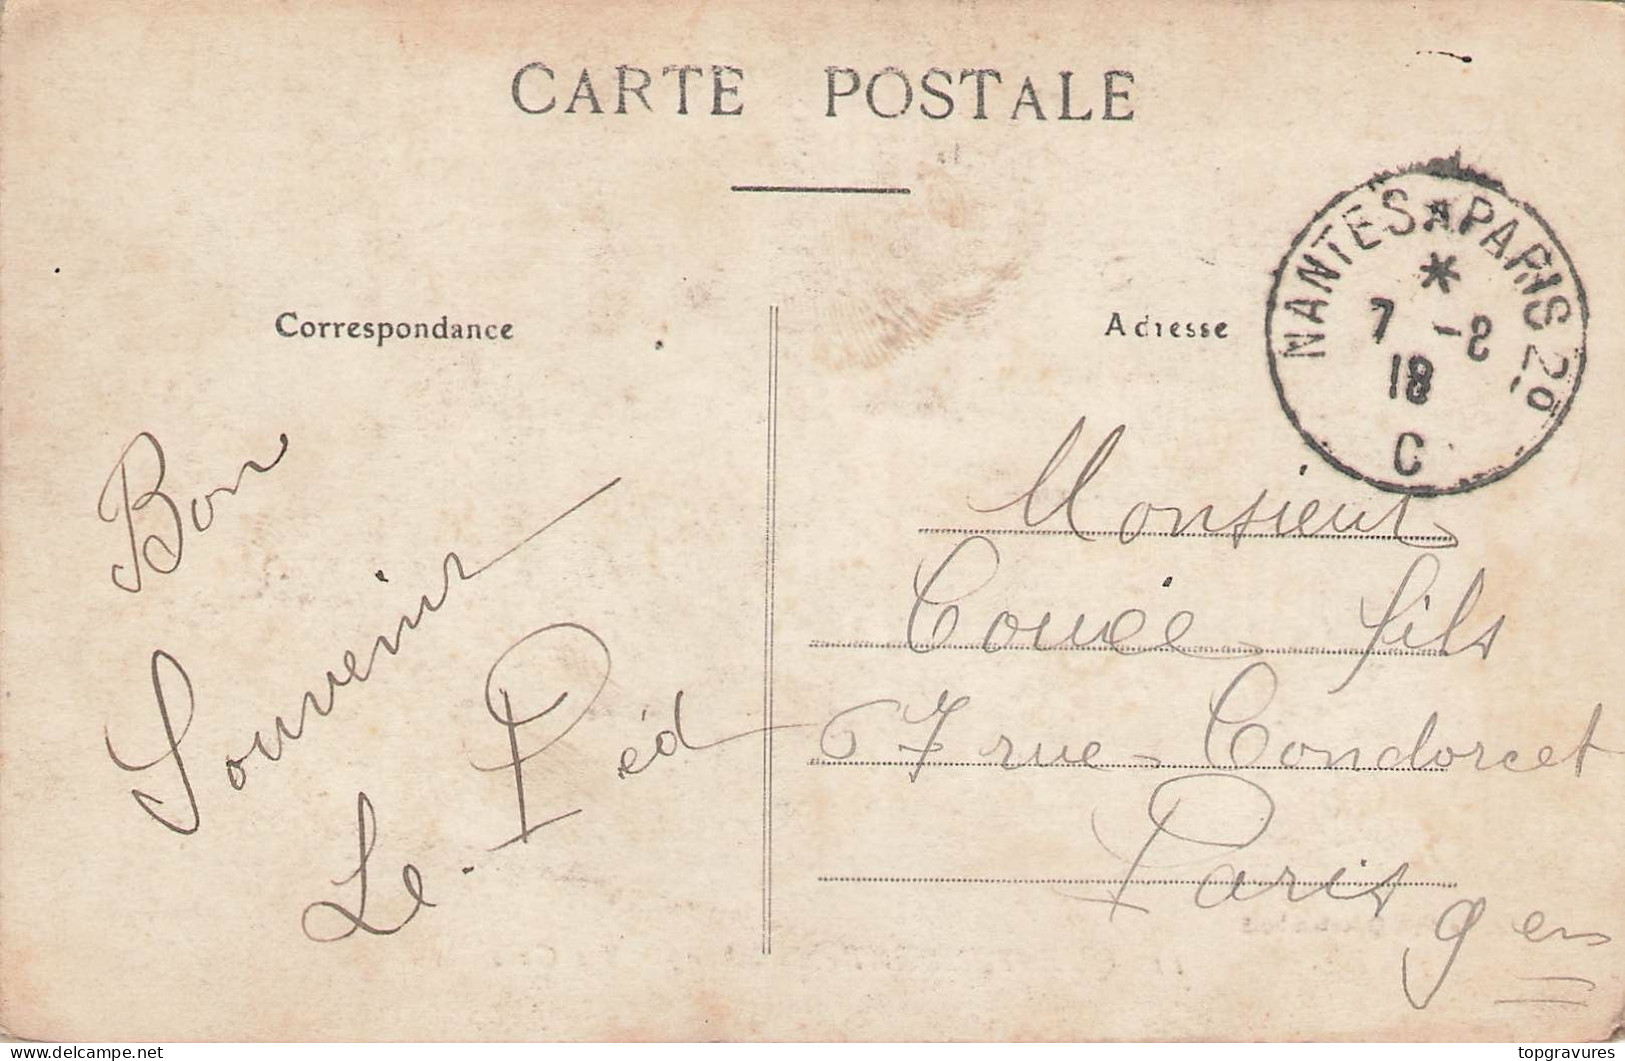 CARTE POSTALE
Correspondance
Adresse
NANTES A PARIS 2º
*
7 -8
18
C
Bon
Souvenir
Le Péd
Monsieur
Couée fils
67 rue Condorcet
Paris
9 em
delcampe.net
topgravures